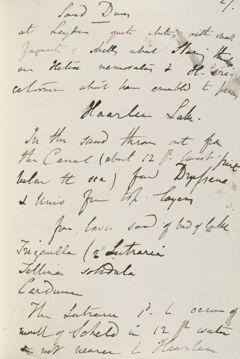 27.
Sand Dunes
at Leyden quite white with small
fragments of shells which Mari thinks
are Helix nemoralis & H.
cetorum which
Haarlem Lake.
In the sand thrown out from
the Canal (about 12 ft lowest point
below the sea) found Dreissena
& Unio from top layers
from lower sand of bed of lake
Trigonella (= Lutraria
Tellina solidula
Cardium
The Lutraria to occur of
mouth of Scheld in 12 ft water
& not nearer to Haarlem